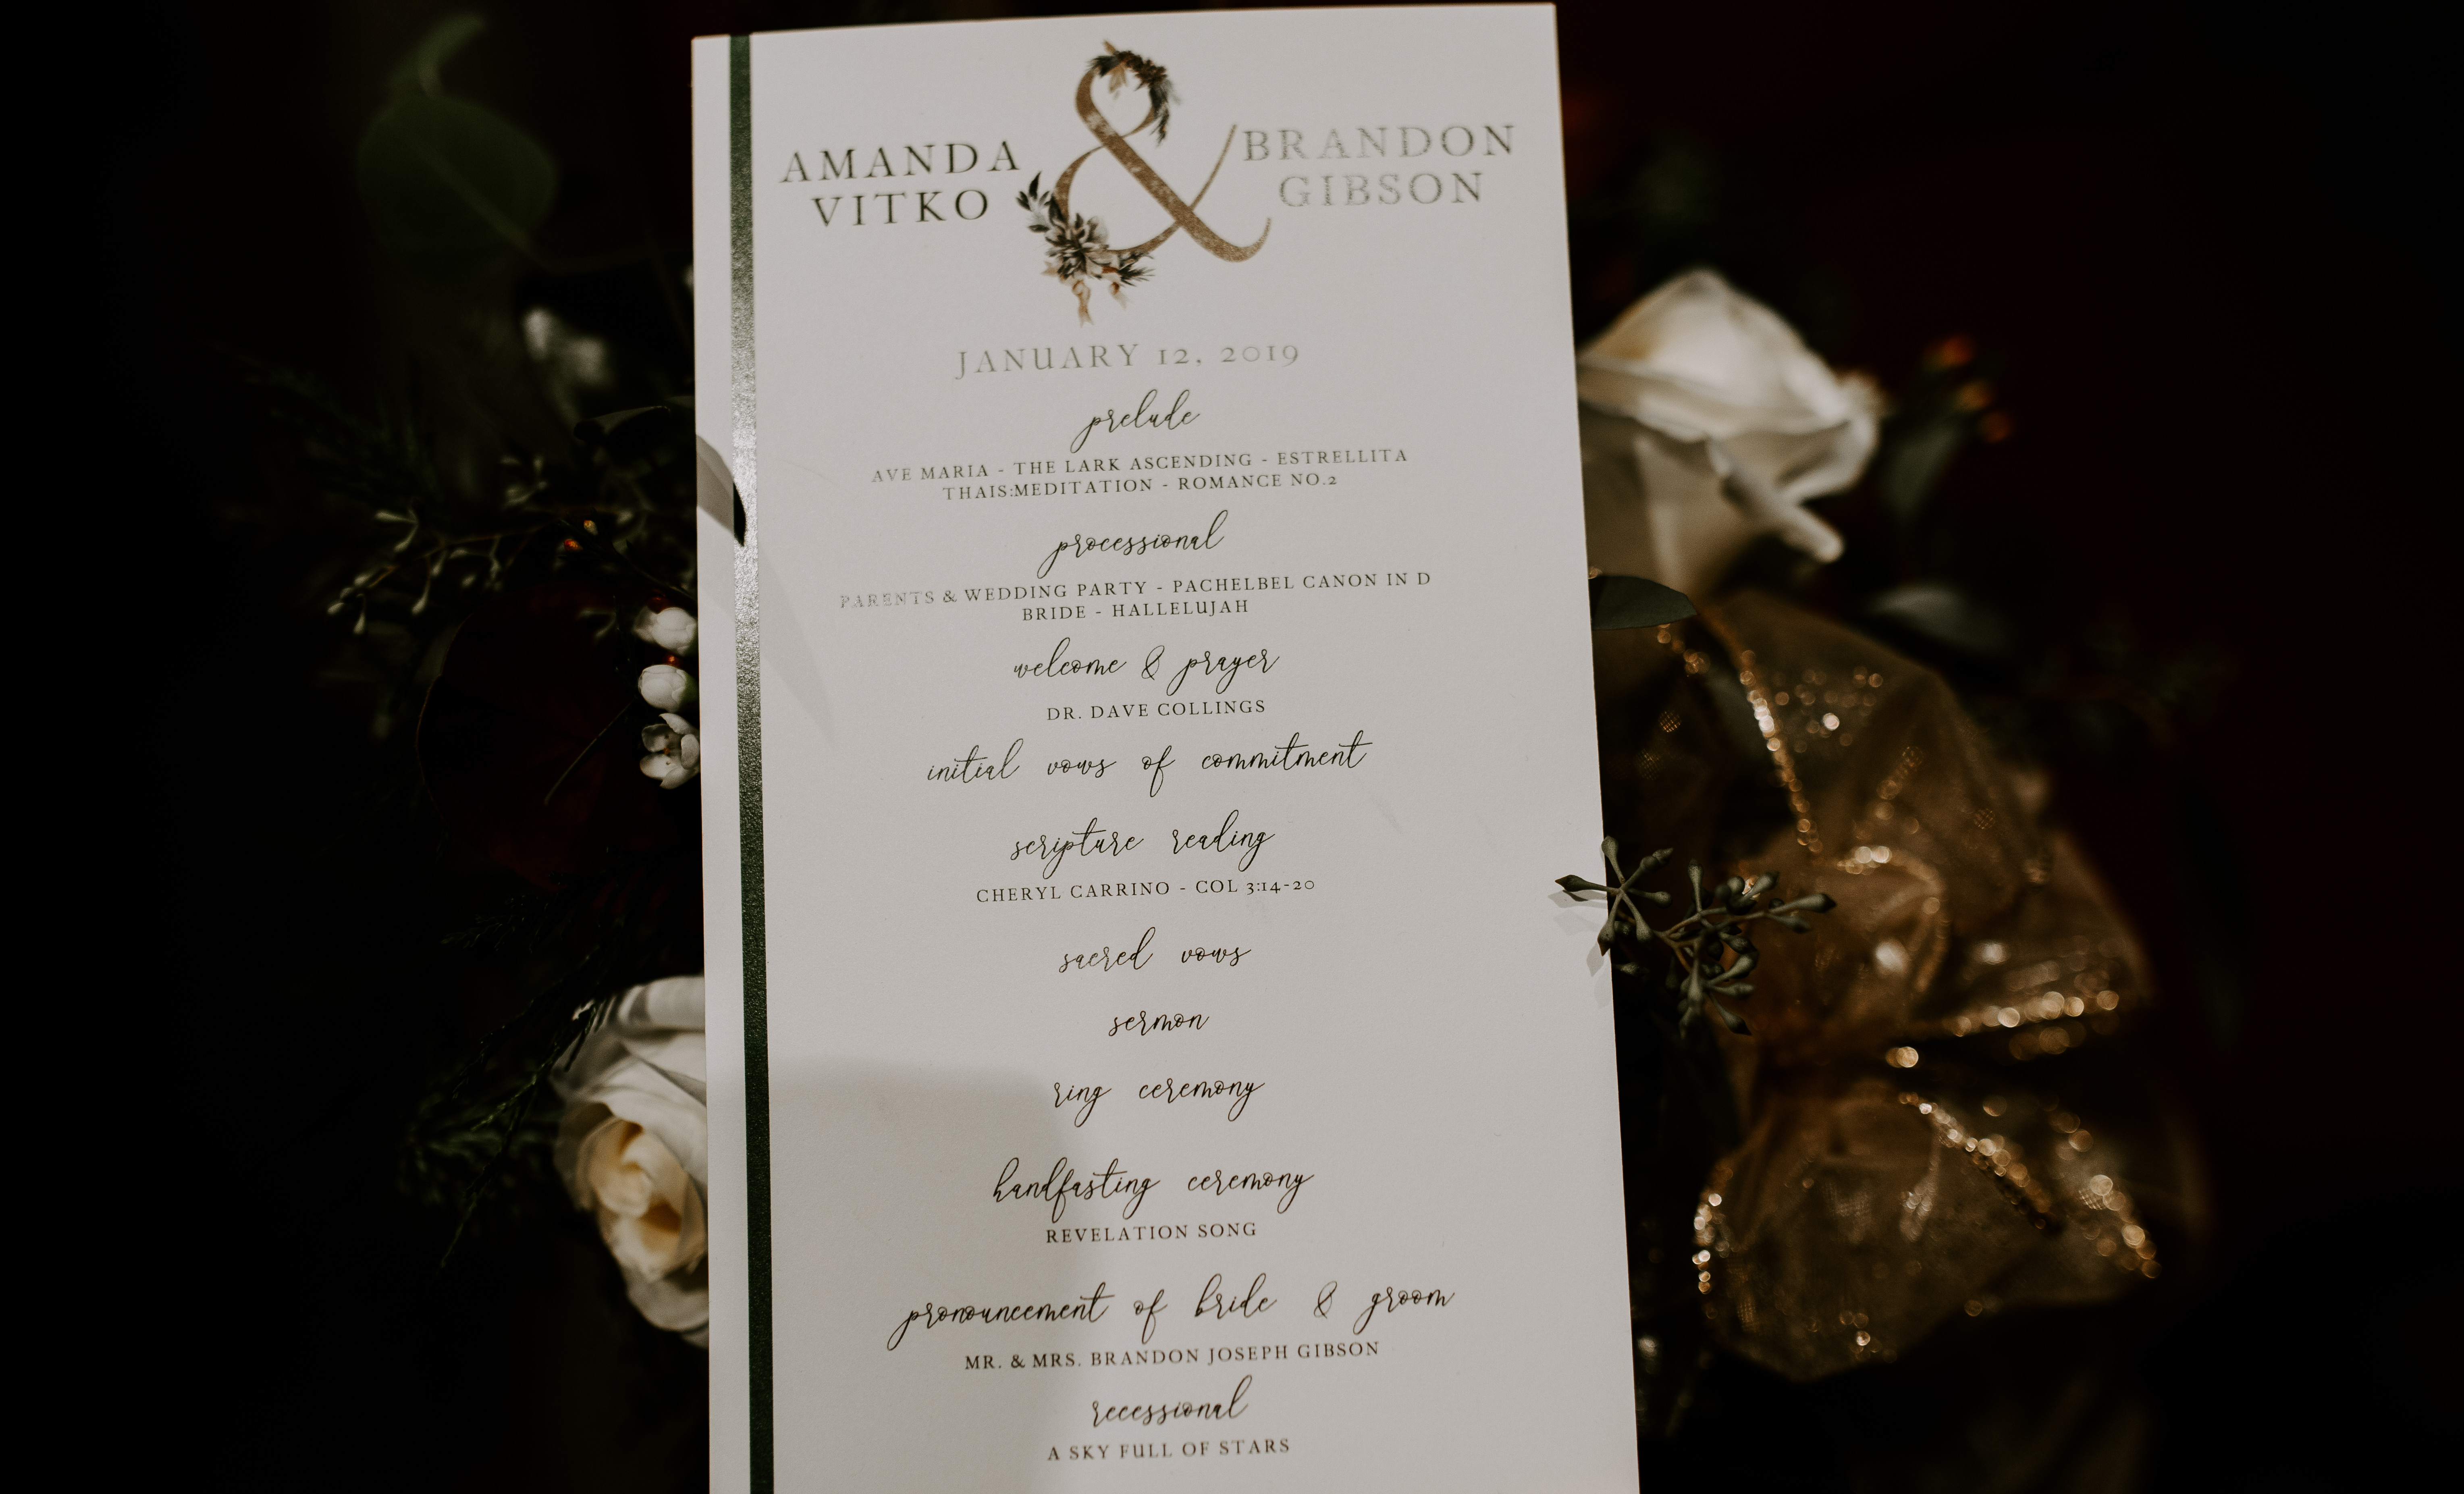 AMANDA & BRANDON
VITKO GIBSON
JANUARY 12, 2019
prelude
AVE MARIA - THE LARK ASCENDING - ESTRELLITA
THAIS:MEDITATION - ROMANCE NO.2
processional
PARENTS & WEDDING PARTY - PACHELBEL CANON IN D
BRIDE - HALLELUJAH
welcome & prayer
DR. DAVE COLLINGS
initial vows of commitment
scripture reading
CHERYL CARRINO - COL 3:14-20
sacred vows
sermon
ring ceremony
handfasting ceremony
REVELATION SONG
pronouncement of bride & groom
MR. & MRS. BRANDON JOSEPH GIBSON
recessional
A SKY FULL OF STARS